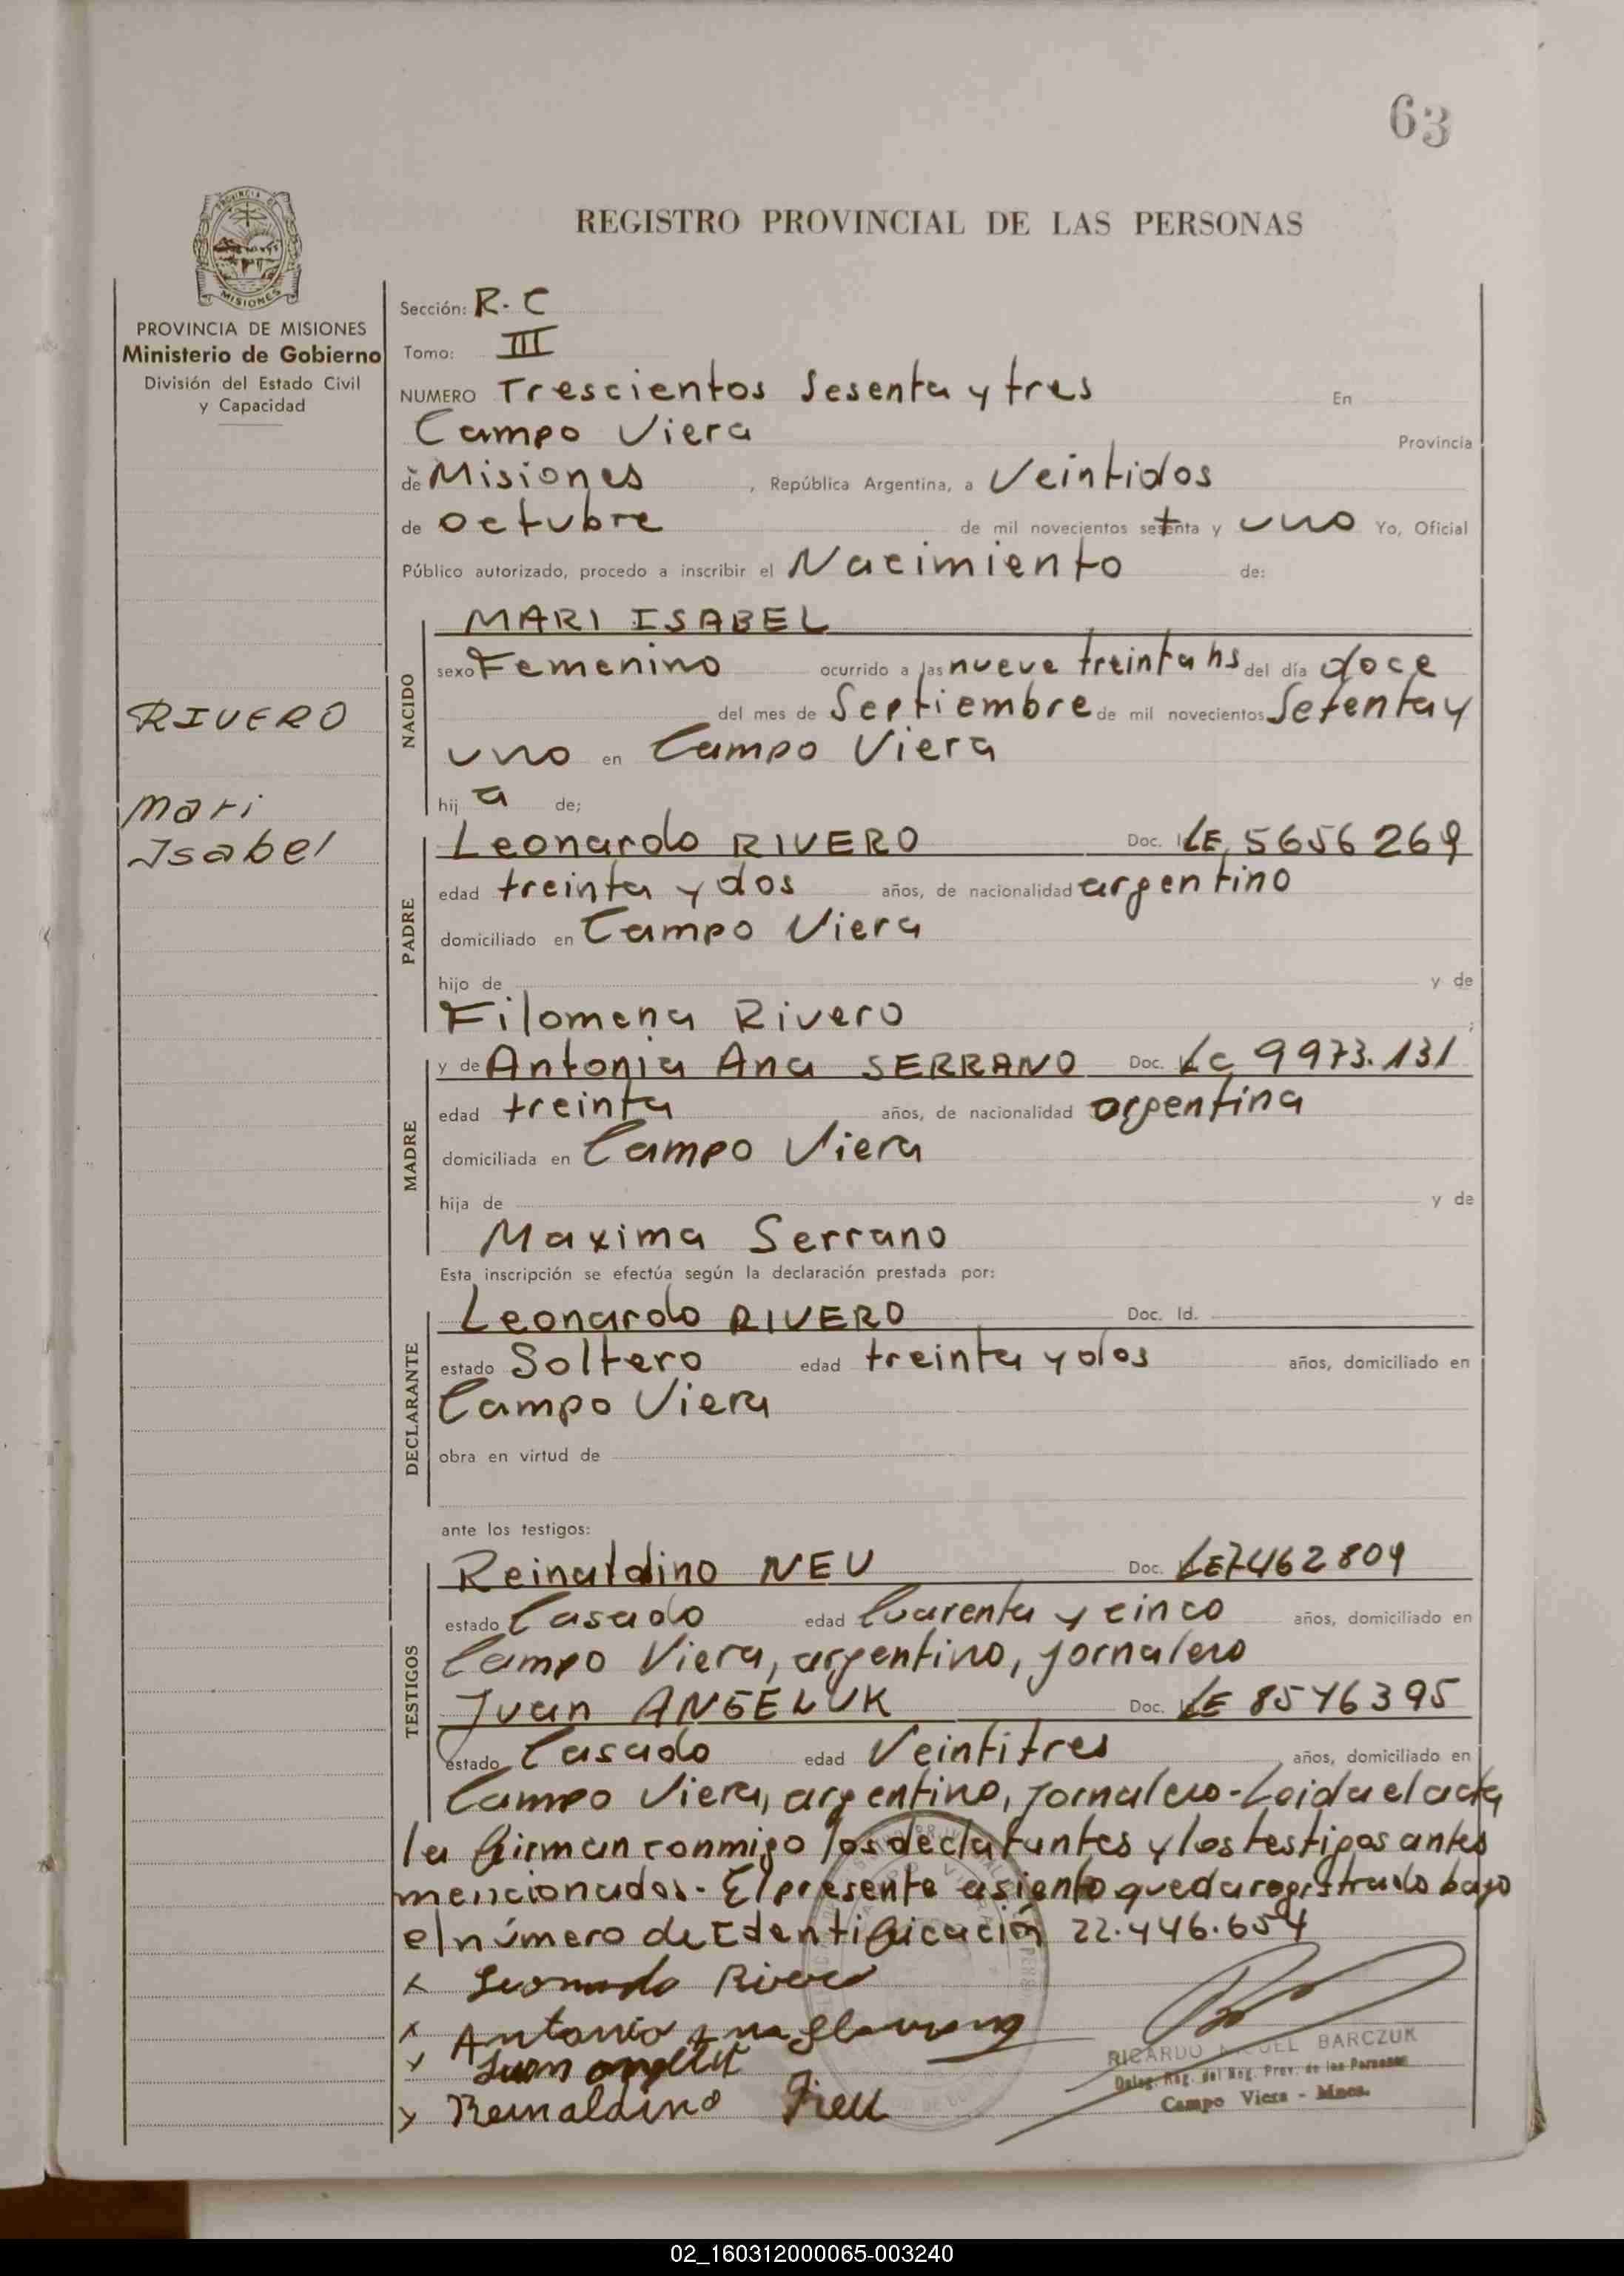 63
PROVINCIA DE
MISIONES
REGISTRO PROVINCIAL DE LAS PERSONAS
PROVINCIA DE MISIONES
Ministerio de Gobierno
División del Estado Civil
y Capacidad
RIVERO
Mari
Isabel
Sección: R. C
Tomo: III
NUMERO Trescientos Sesenta y tres En
Campo Viera Provincia
de Misiones, República Argentina, a Veintidos
de octubre de mil novecientos setenta y uno Yo, Oficial
Público autorizado, procedo a inscribir el Nacimiento de:
NACIDO
MARI ISABEL
sexo Femenino ocurrido a las nueve treinta hs del día doce
del mes de Septiembre de mil novecientos Setenta y
uno en Campo Viera
hij a de;
PADRE
Leonardo RIVERO Doc. LE 5656269
edad treinta y dos años, de nacionalidad argentino
domiciliado en Campo Viera
hijo de y de
Filomena Rivero ;
MADRE
y de Antonia Ana SERRANO Doc. LC 9973.131
edad treinta años, de nacionalidad argentina
domiciliada en Campo Viera
hija de y de
Maxima Serrano
Esta inscripción se efectúa según la declaración prestada por:
DECLARANTE
Leonardo RIVERO Doc. Id.
estado Soltero edad treinta y dos años, domiciliado en
Campo Viera
obra en virtud de
ante los testigos:
TESTIGOS
Reinaldino NEU Doc. LE 7462809
estado Casado edad Cuarenta y cinco años, domiciliado en
Campo Viera, argentino, jornalero
Juan ANGELUK Doc. LE 8546395
estado Casado edad Veintitres años, domiciliado en
Campo Viera, argentino, jornalero - Leida el acta
la firman conmigo los declarantes y los testigos antes
mencionados. El presente asiento queda registrado bajo
el número de Identificación 22.446.654
x Leonardo Rivero
x Antonia Ana
x Juan
x Reinaldino Neu
RICARDO MIGUEL BARCZUK
Deleg. Reg. del Reg. Prov. de las Personas
Campo Viera - Mnes.
02_160312000065-003240